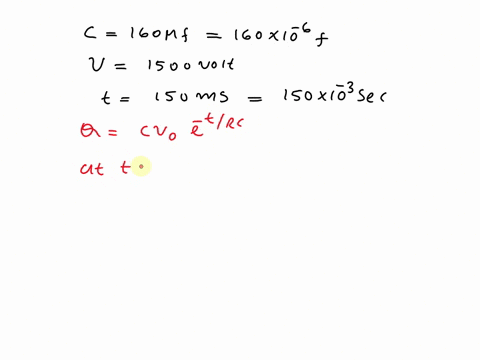 C = 160 Mf = 160 × 10⁻⁶ f
V = 1500 volt
t = 150 ms = 150 × 10⁻³ Sec
Q = CV₀ e^-t/RC
at t